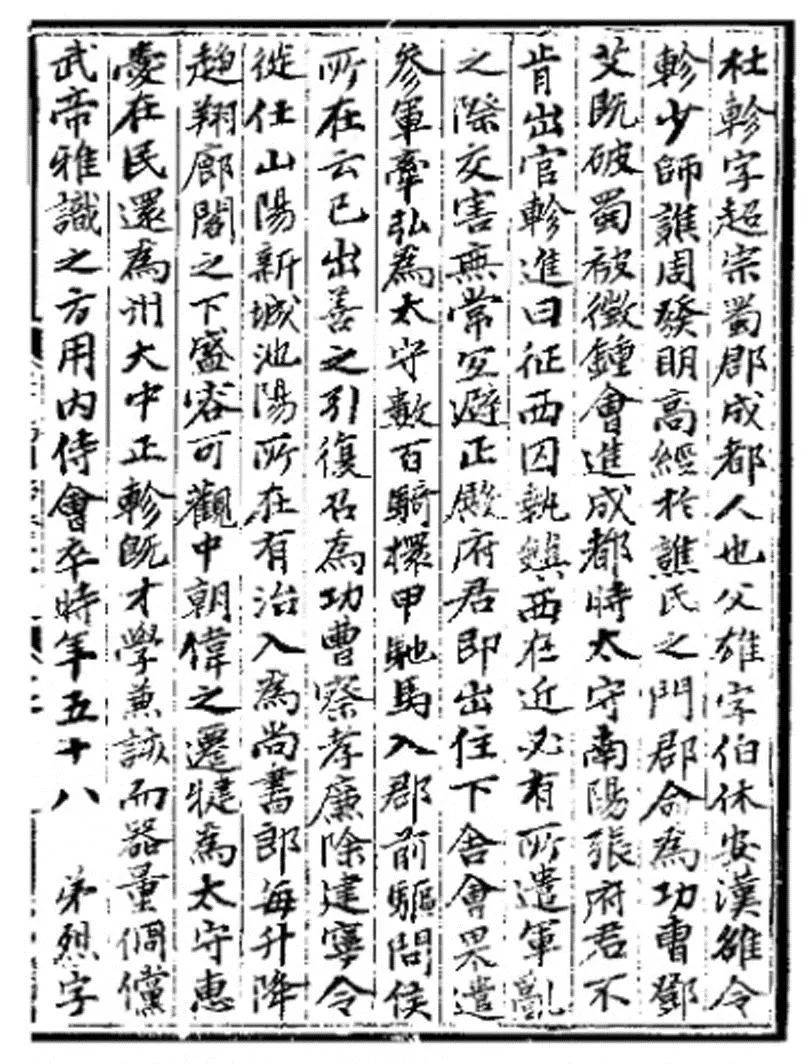 杜軫字超宗蜀郡成都人也父雄字伯休安漢雒令
軫少師譙周發明高經於譙氏之門郡命為功曹鄧
艾既破蜀被徵鍾會進成都時太守南陽張府君不
肯出官軫進曰征西囚執鎮西在近必有所遣軍亂
之際交害無常宜避正殿府君即出住下舍會果遣
參軍牽弘為太守數百騎擐甲馳馬入郡前驅問侯
所在云已出善之引復召為功曹察孝廉除建寧令
從仕山陽新城池陽所在有治入為尚書郎每升降
趨翔廊閣之下盛容可觀中朝偉之遷犍為太守惠
愛在民還為州大中正軫既才學兼該而器量倜儻
武帝雅識之方用內侍會卒時年五十八　弟烈字